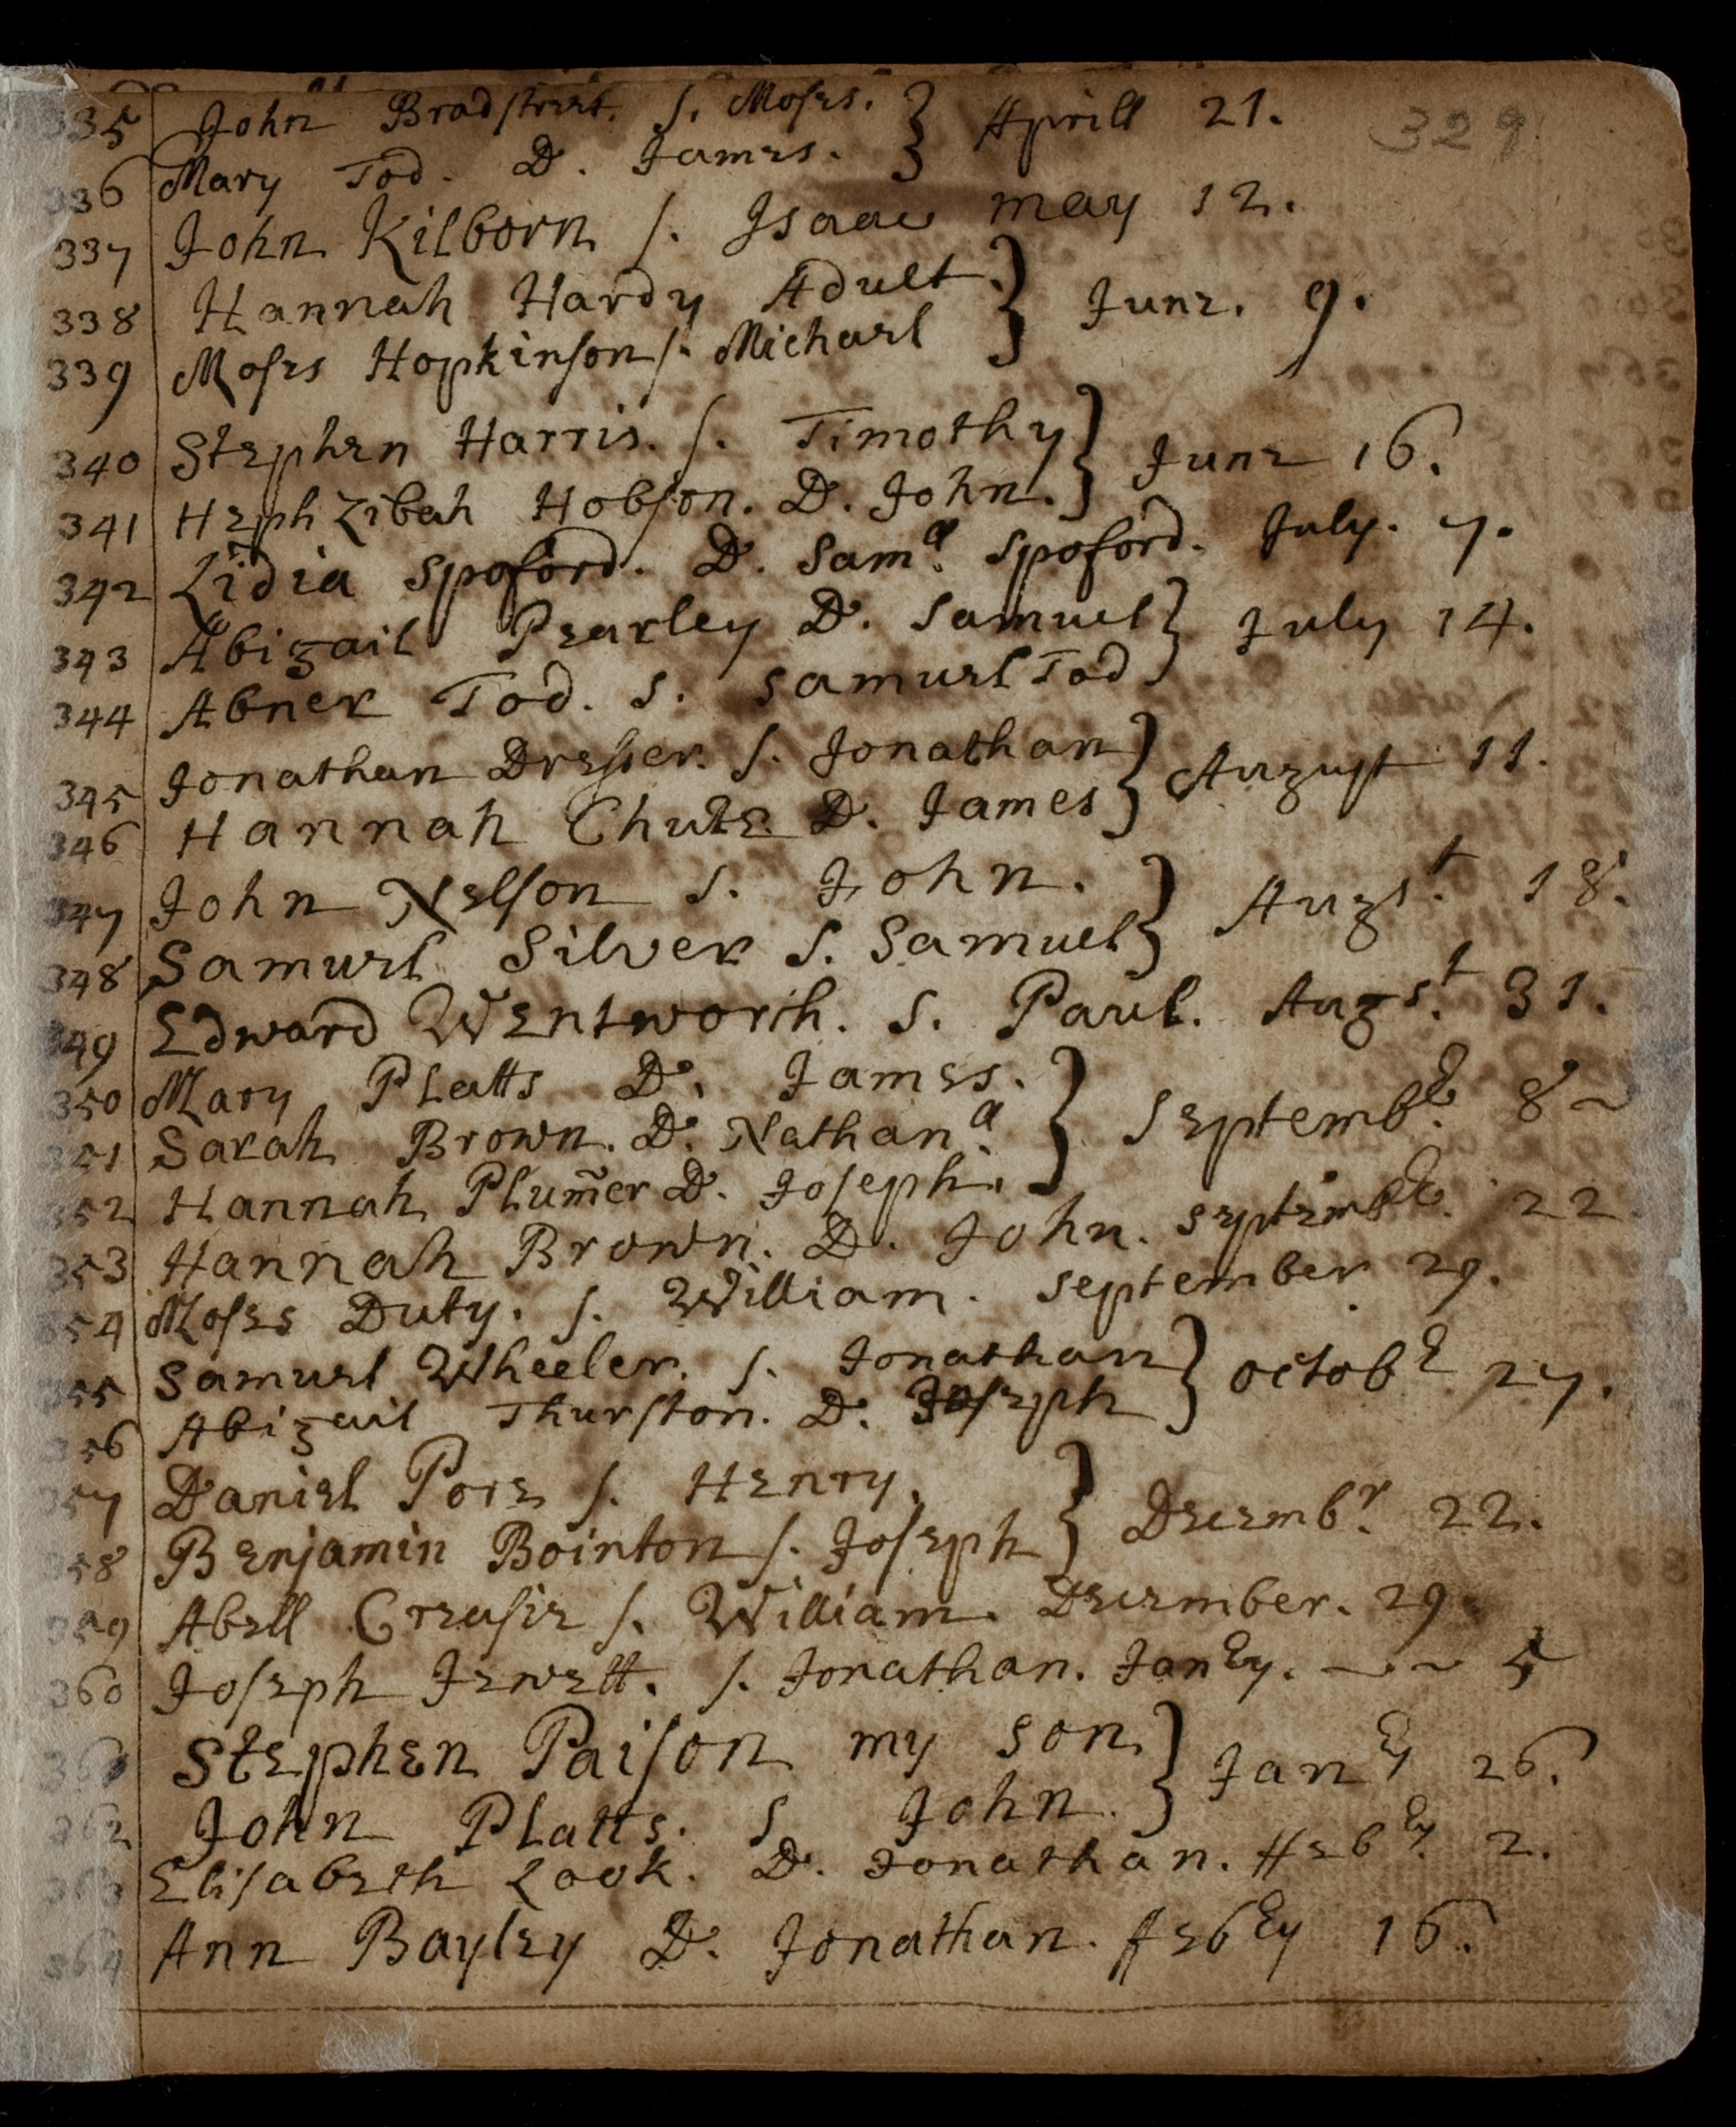 329
335 John Bradstreet. S. Moses. } Aprill 21.
336 Mary Tod. D. James.
337 John Kilborn S. Isaac may 12.
338 Hannah Hardy Adult. } June. 9.
339 Moses Hopkinson S. Michael
340 Stephen Harris. S. Timothy } June 16.
341 Hephzibah Hobson. D. John.
342 Lidia Spoford. D. Samll. Spoford. July. 7.
343 Abigail Pearley D. Samuel } July 14.
344 Abner Tod. S. Samuel Tod
345 Jonathan Dresser. S. Jonathan } August 11.
346 Hannah Chute D. James
347 John Nelson S. John. } Augst. 18.
348 Samuel Silver S. Samuel
349 Edward Wentworth. S. Paul. Augst. 31.
350 Mary Platts D. James. } Septembr. 8
351 Sarah Brown. D. Nathanll.
352 Hannah Plum̃er D. Joseph.
353 Hannah Brown. D. John. Septembr. 22
354 Moses Duty. S. William. September 29.
355 Samuel Wheeler. S. Jonathan } Octobr 27.
356 Abigail Thurston. D. Joseph
357 Daniel Pore S. Henry. } Decembr. 22.
358 Benjamin Bointon S. Joseph
359 Abell Creasie S. William. December. 29.
360 Joseph Jewett. S. Jonathan. Janry. 5
361 Stephen Paison my son } Janry 26.
362 John Platts. S John.
363 Elisabeth Look. D. Jonathan. Febry. 2.
364 Ann Bayley D. Jonathan. Febry 16.